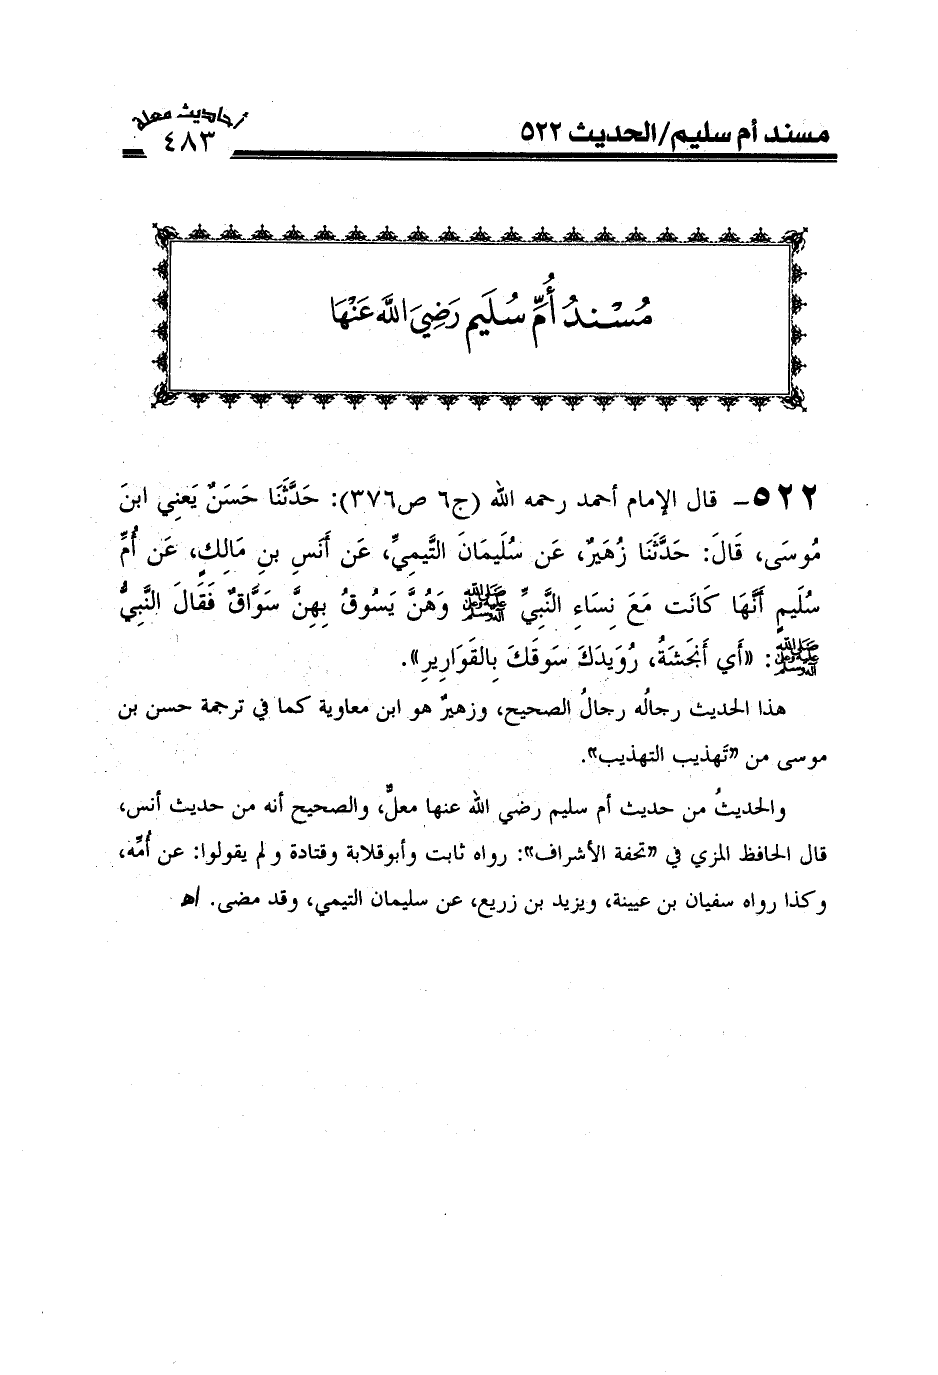 مسند أم سليم/الحديث ٥٢٢
أحاديث معلة
٤٨٣
مُسْنَدُ أُمِّ سُلَيم رَضِيَ اللَّه عَنْهَا
٥٢٢ـ قال الإمام أحمد رحمه الله (ج٦ ص٣٧٦): حَدَّثَنَا حَسَنٌ يَعنِي ابنَ
مُوسَى، قَالَ: حَدَّثَنَا زُهَيرٌ، عَن سُلَيمَانَ التَّيمِيِّ، عَن أَنَسِ بنِ مَالِكٍ، عَن أُمِّ
سُلَيمٍ أَنَّهَا كَانَت مَعَ نِسَاءِ النَّبِيِّ ﷺ وَهُنَّ يَسُوقُ بِهِنَّ سَوَّاقٌ فَقَالَ النَّبِيُّ
ﷺ: «أَي أَنجَشَةُ، رُوَيدَكَ سَوقَكَ بِالقَوَارِيرِ».
هذا الحديث رجالُه رجالُ الصحيح، وزهيرٌ هو ابن معاوية كما في ترجمة حسن بن
موسى من «تَهذيب التهذيب».
والحديثُ من حديث أم سليم رضي الله عنها معلٌّ، والصحيح أنه من حديث أنس،
قال الحافظ المزي في «تحفة الأشراف»: رواه ثابت وأبوقلابة وقتادة ولم يقولوا: عن أُمِّه،
وكذا رواه سفيان بن عيينة، ويزيد بن زريع، عن سليمان التيمي، وقد مضى. اﻫ